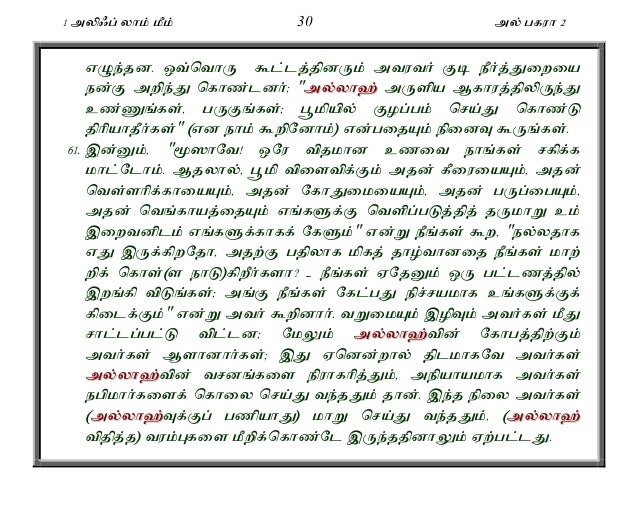 1 அலிஃப் லாம் மீம் 30 அல் பகரா 2
எழுந்தன. ஒவ்வொரு கூட்டத்தினரும் அவரவர் குடி நீர்த்துறையை
நன்கு அறிந்து கொண்டனர்; "அல்லாஹ் அருளிய ஆகாரத்திலிருந்து
உண்ணுங்கள், பருகுங்கள்; பூமியில் குழப்பம் செய்து கொண்டு
திரியாதீர்கள்" (என நாம் கூறினோம்) என்பதையும் நினைவு கூருங்கள்.
61. இன்னும், "மூஸாவே! ஒரே விதமான உணவை நாங்கள் சகிக்க
மாட்டோம். ஆதலால், பூமி விளைவிக்கும் அதன் கீரையையும், அதன்
வெள்ளரிக்காயையும், அதன் கோதுமையையும், அதன் பருப்பையும்,
அதன் வெங்காயத்தையும் எங்களுக்கு வெளிப்படுத்தித் தருமாறு உம்
இறைவனிடம் எங்களுக்காகக் கேளும்" என்று நீங்கள் கூற, "நல்லதாக
எது இருக்கிறதோ, அதற்கு பதிலாக மிகத் தாழ்வானதை நீங்கள் மாற்
றிக் கொள்(ள நாடு)கிறீர்களா? - நீங்கள் ஏதேனும் ஒரு பட்டணத்தில்
இறங்கி விடுங்கள்; அங்கு நீங்கள் கேட்பது நிச்சயமாக உங்களுக்குக்
கிடைக்கும்" என்று அவர் கூறினார். வறுமையும் இழிவும் அவர்கள் மீது
சாட்டப்பட்டு விட்டன; மேலும் அல்லாஹ்வின் கோபத்திற்கும்
அவர்கள் ஆளானார்கள்; இது ஏனென்றால் திடமாகவே அவர்கள்
அல்லாஹ்வின் வசனங்களை நிராகரித்தும், அநியாயமாக அவர்கள்
நபிமார்களைக் கொலை செய்து வந்ததும் தான். இந்த நிலை அவர்கள்
(அல்லாஹ்வுக்குப் பணியாது) மாறு செய்து வந்ததும், (அல்லாஹ்
விதித்த) வரம்புகளை மீறிக்கொண்டே இருந்ததினாலும் ஏற்பட்டது.